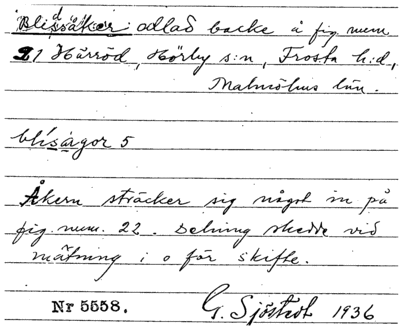 Blissåker: odlad backe å fig num
21 Härröd, Hörby s:n, Frosta h:d,
Malmöhus län.
blísàgor 5
Åkern sträcker sig något in på
fig. num. 22. Delning skedde vid
mätning i o för skifte.
Nr 5558. G. Sjöstedt 1936